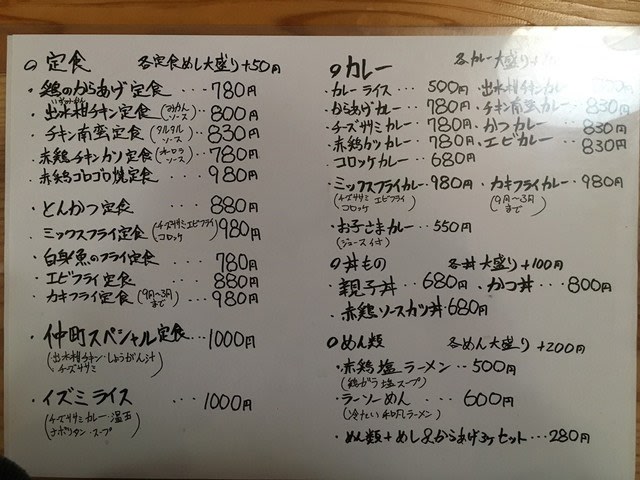 ◦ 定食 各定食めし大盛り+50円
・鶏のからあげ定食 ・・・780円
・出水柑チキン定食(みかんソース) 800円
・チキン南蛮定食(タルタルソース) 830円
・赤鶏チキンカツ定食(オーロラソース) 780円
・赤鶏ゴロゴロ焼定食 ・・・980円
・とんかつ定食 ・・・880円
・ミックスフライ定食(チーズササミ エビフライ コロッケ) 980円
・白身魚のフライ定食 780円
・エビフライ定食 ・・・880円
・カキフライ定食(9月〜3月まで)・・980円
・仲町スペシャル定食・・・1000円
(出水柑チキン・しょうがん汁
・チーズササミ)
・イズミライス ・・・1000円
(チーズササミカレー・温玉
ナポリタン・スープ)
◦ カレー 各カレー大盛り
・カレーライス ・・・500円
・出水柑チキンカレー
・からあげカレー 780円
・チキン南蛮カレー 830円
・チーズササミカレー 780円
・かつカレー 830円
・赤鶏カツカレー 780円
・エビカレー 830円
・コロッケカレー 680円
・ミックスフライカレー・980円
(チーズササミ エビフライ
コロッケ)
・カキフライカレー・980円
(9月〜3月まで)
・お子さまカレー・550円
(ジュース付き)
◦丼もの 各丼大盛り+100円
・親子丼・・680円
・かつ丼・・・800円
・赤鶏ソースカツ丼・680円
◦めん類 各めん大盛り+200円
・赤鶏塩ラーメン・・・500円
(鶏ガラ塩スープ)
・ラーソーめん ・・・600円
(冷たい和風ラーメン)
・めん類+めし&からあげ3ケセット・・・280円